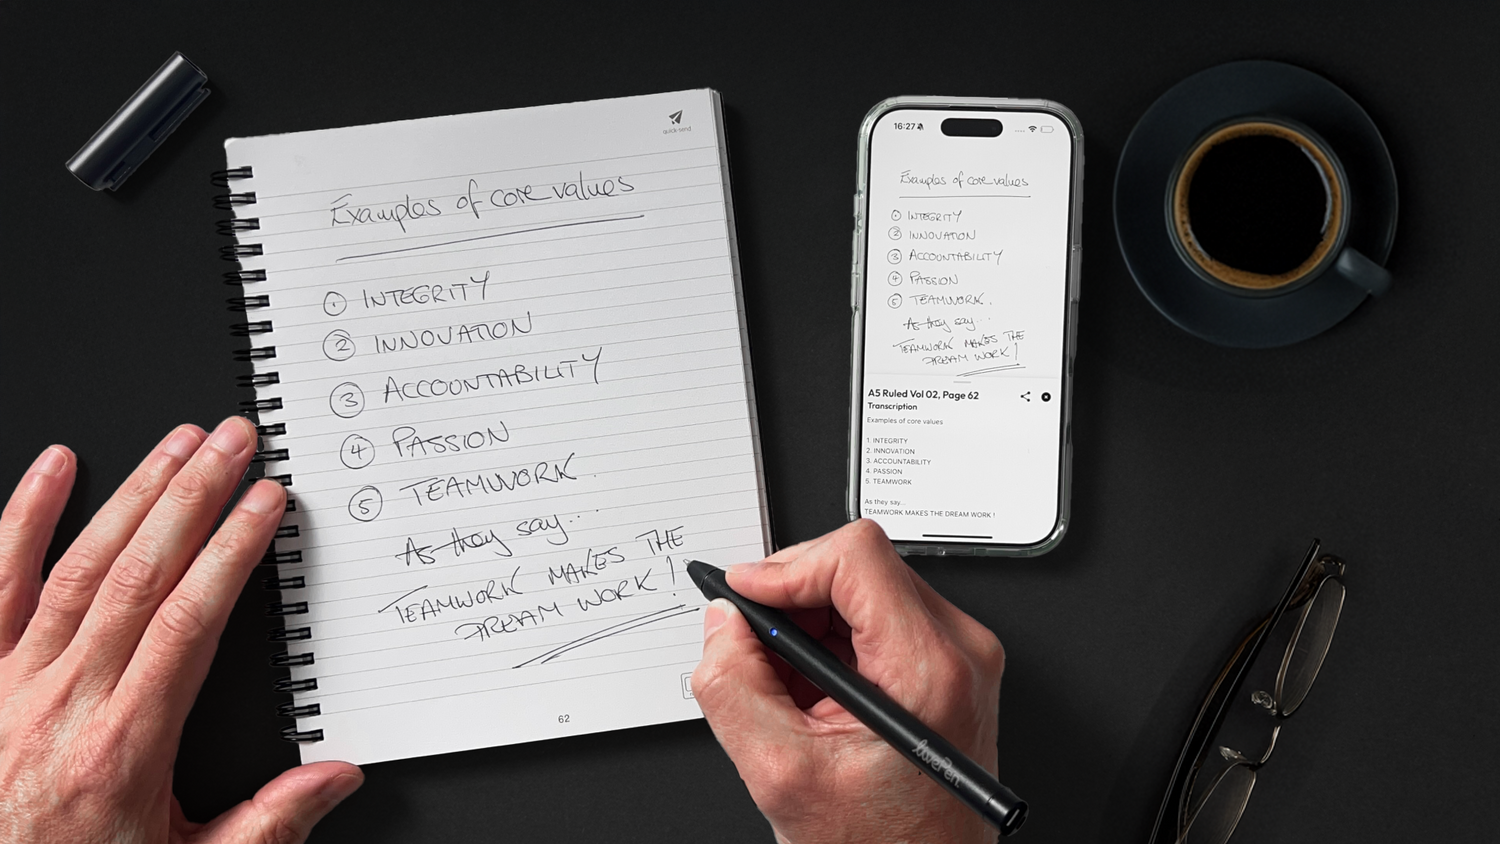 quick-send
Examples of core values
1 INTEGRITY
2 INNOVATION
3 ACCOUNTABILITY
4 PASSION
5 TEAMWORK.
As they say...
TEAMWORK MAKES THE
DREAM WORK!
62
16:27
Examples of core values
1 INTEGRITY
2 INNOVATION
3 ACCOUNTABILITY
4 PASSION
5 TEAMWORK.
As they say...
TEAMWORK MAKES THE
DREAM WORK!
A5 Ruled Vol 02, Page 62
Transcription
Examples of core values
1. INTEGRITY
2. INNOVATION
3. ACCOUNTABILITY
4. PASSION
5. TEAMWORK
As they say...
TEAMWORK MAKES THE DREAM WORK !
livePen